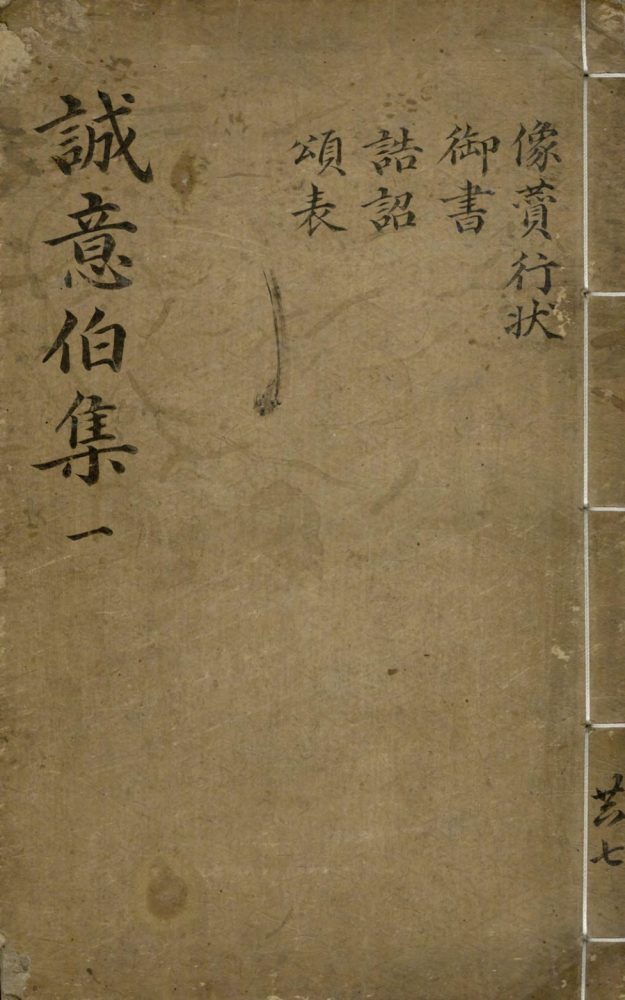 共七
像賛行状
御書
誥詔
頌表
誠意伯集 一